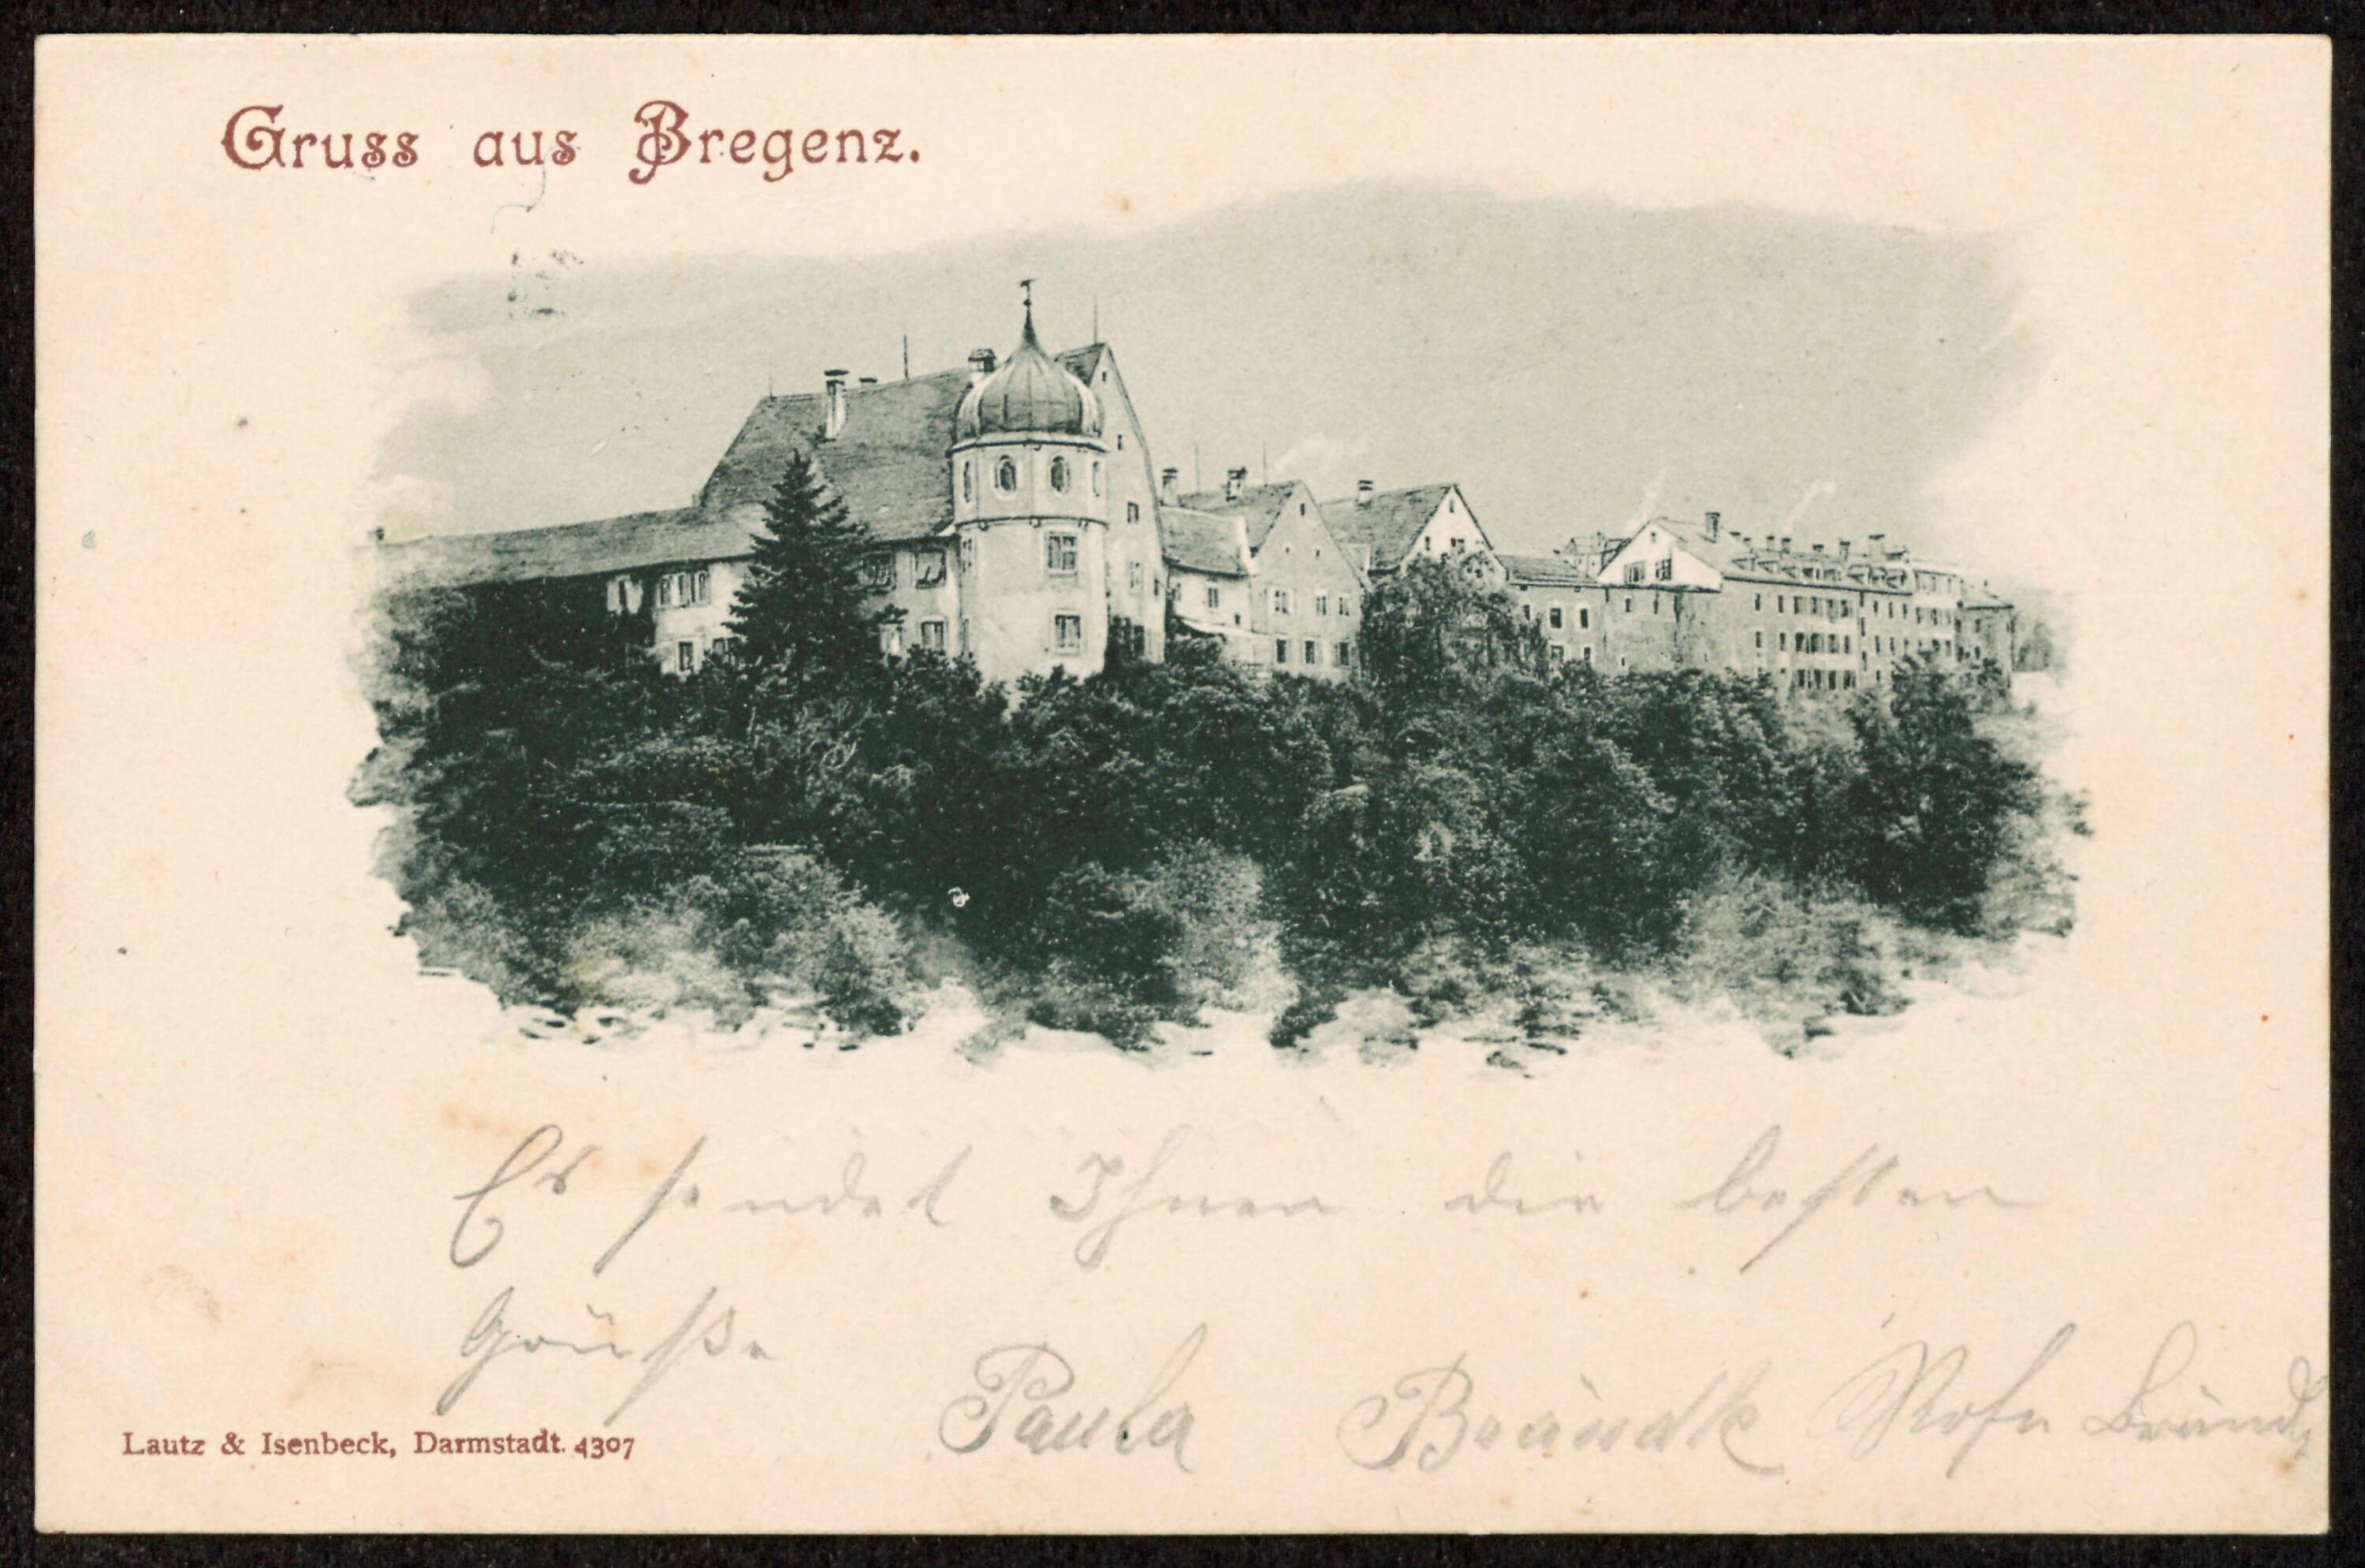 Gruss aus Bregenz.
Es sendet Ihnen die besten
Grüße
Paula Rosa
Lautz & Isenbeck, Darmstadt. 4307